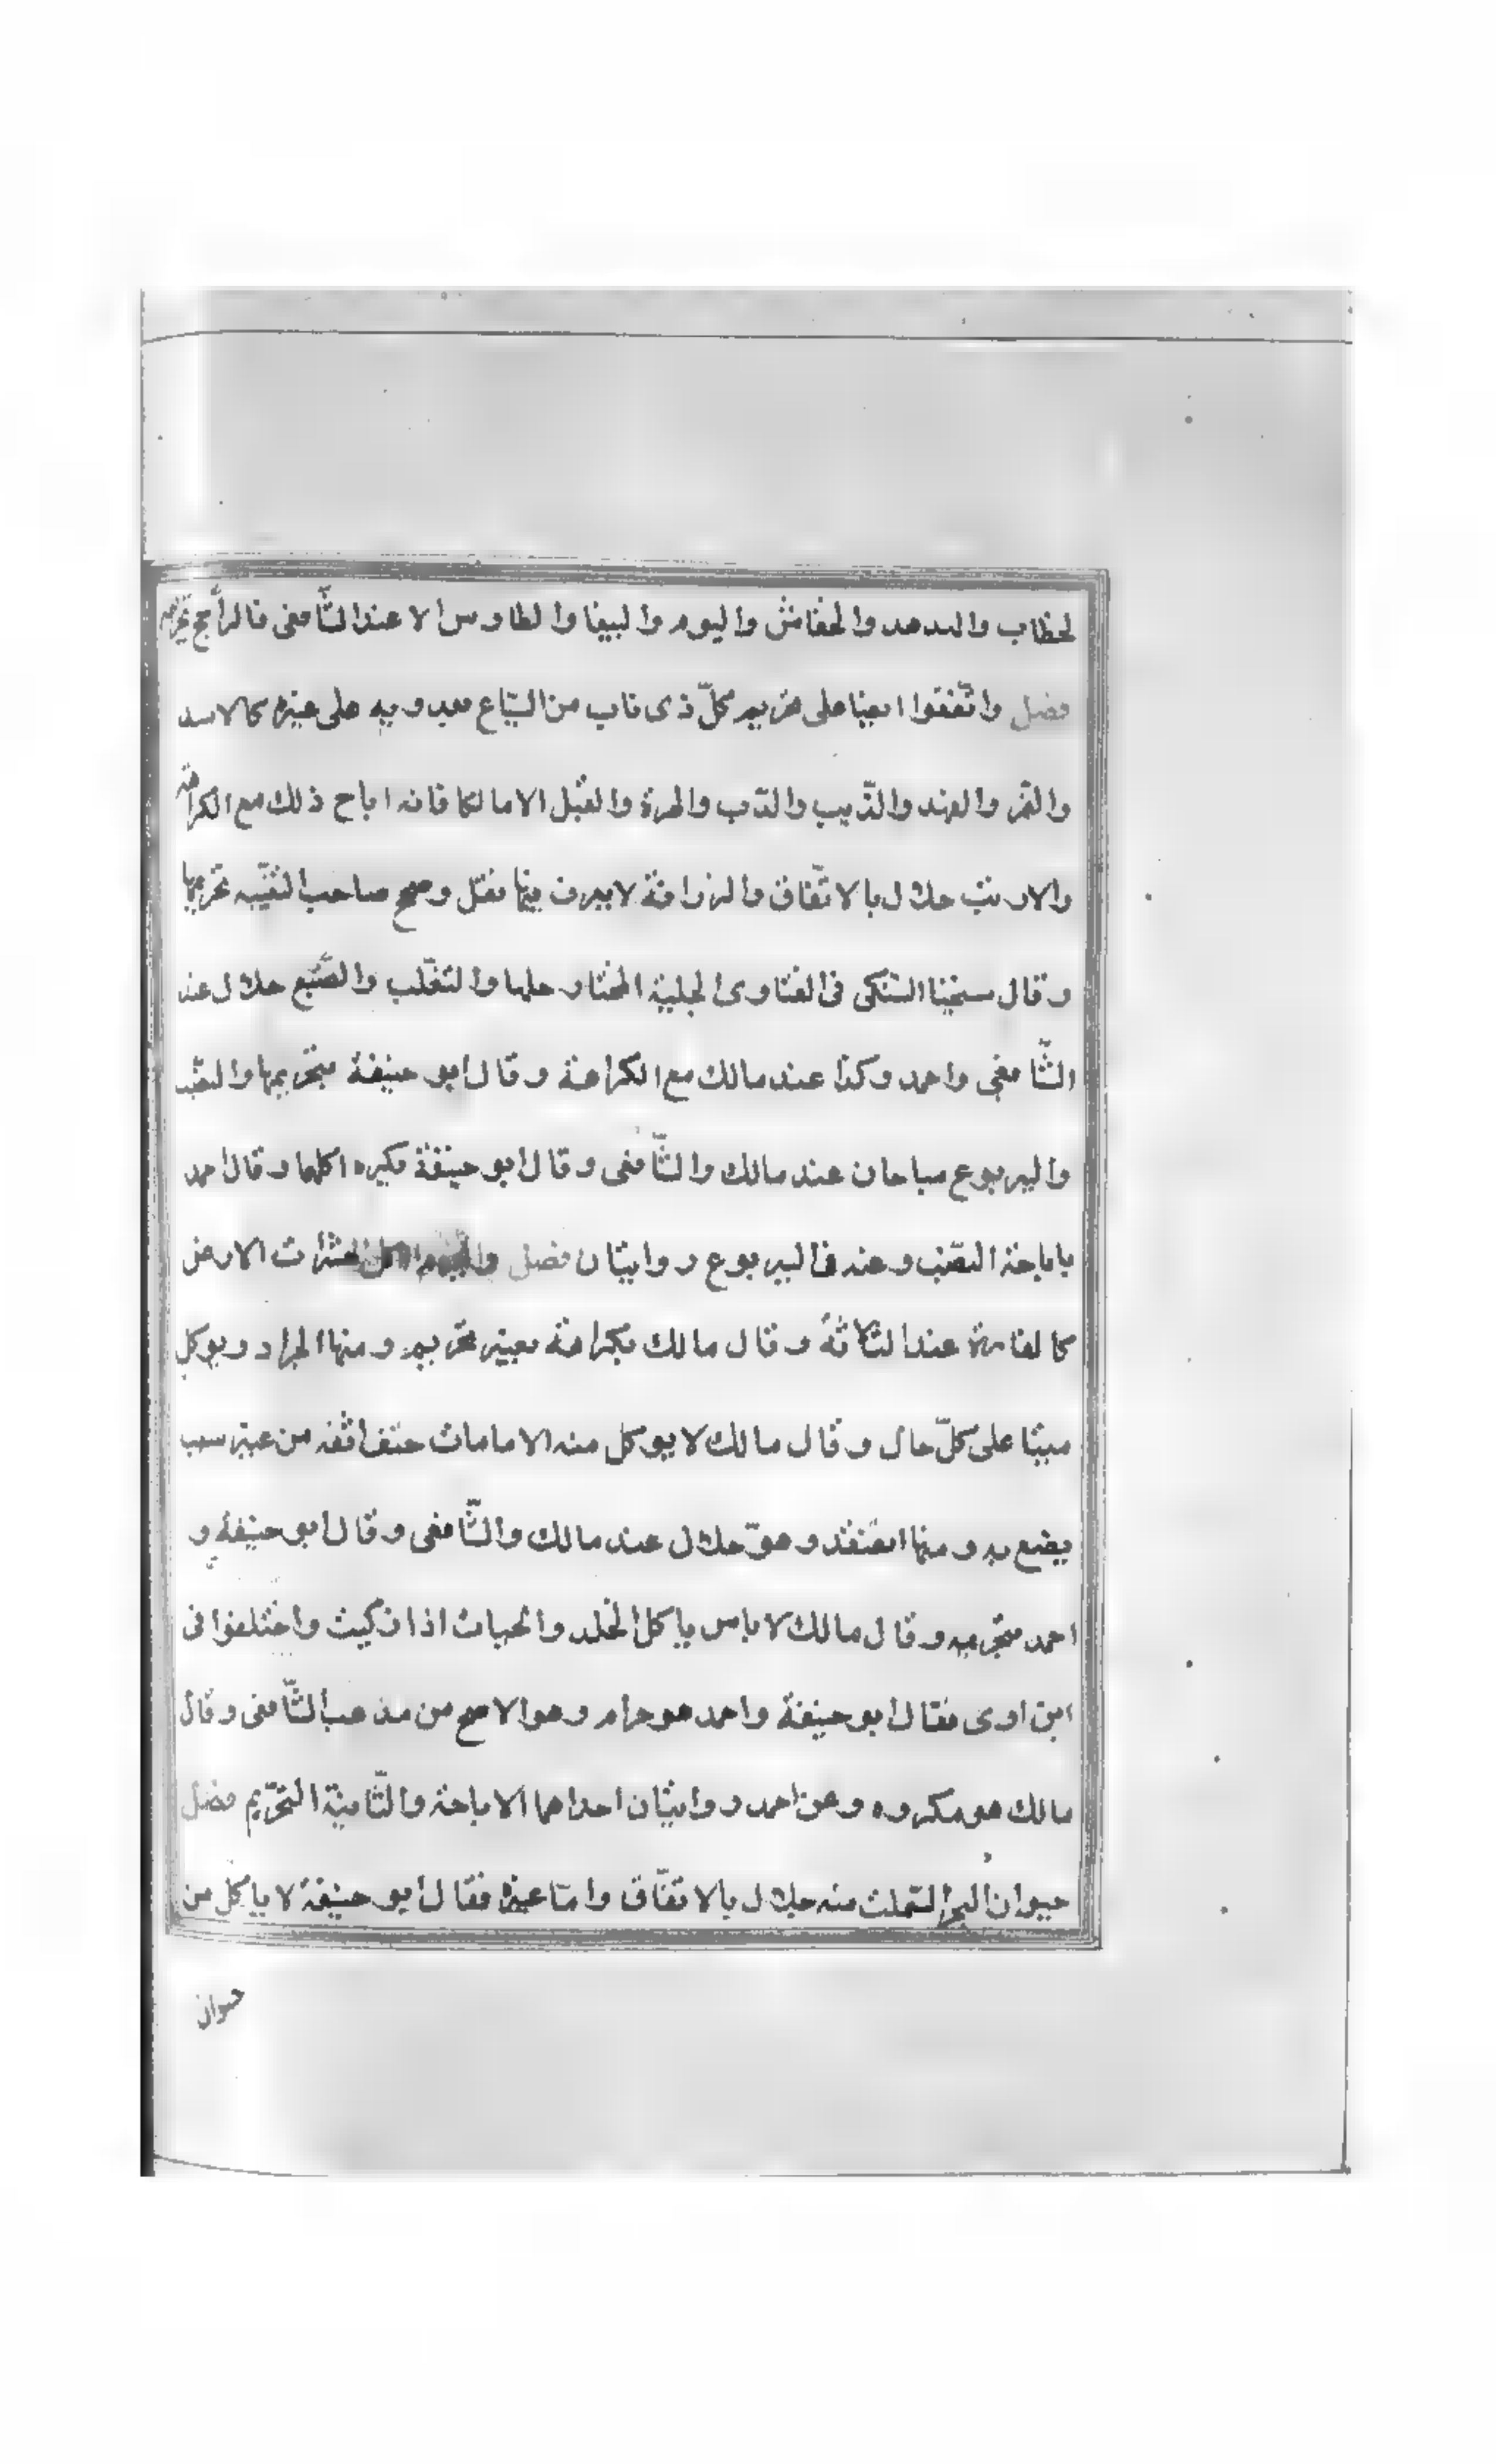 لخطاب والهدهد والخفاش واليوم والببغا والطاوس الا عند الشّافعى فالرأجح تحريم
فصل واتّفقوا ايضا على تحريم كلّ ذى ناب من السّباع يعدو به على غيره كالاسد
والنمر والفهد والذّيب والدّب والهرة والفيل الا مالكا فانه اباح ذلك مع الكراهة
والارنب حلال بالاتّفاق والزرافة لا يعرف فيها نقل وصحح صاحب التنبيه تحريمها
وقال شيخنا السّبكى فى الفتاوى الحلبية المختار حلها والثعلب والضّبع حلال عند
الشّافعى واحمد وكذا عند مالك مع الكراهة وقال ابو حنيفة بتحريمها والضب
واليربوع مباحان عند مالك والشّافعى وقال ابو حنيفة يكره اكلهما وقال احمد
باباحة الضّب وعنه فى اليربوع روايتان فصل حشرات الارض
كالفارة عند الثلاثة وقال مالك بكراهة بغير تحريم ومنها الجراد ويوكل
ميتا على كلّ حال وقال مالك لا يوكل منه الا ما مات حتف انفه من غير سبب
يصنع به ومنها القنفذ وهو حلال عند مالك والشّافعى وقال ابو حنيفة و
احمد بتحريمه وقال مالك لا باس باكل الخلد والحيات اذا ذكيت واختلفوا فى
ابن اوى فقال ابو حنيفة واحمد هو حرام وهو الاصح من مذهب الشّافعى وقال
مالك هو مكروه وعن احمد روايتان احداهما الاباحة والثّانية التحريم فصل
حيوان البحر السّمك منه حلال بالاتفّاق وامّا غيره فقال ابو حنيفة لا ياكل من
حيوان